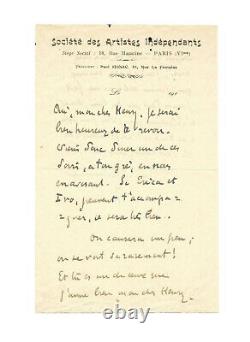 Société des Artistes Indépendants
Siège Social : 18, Rue Mansine - PARIS
Paul SIGNAC, Rue La Fontaine
Oui, mon cher Henry, je serai
bien heureux de te revoir.
Viens donc dîner un de ces
soirs, à ton gré, en nous
en avisant. Si Erica et
Ivo, peuvent t'accompa-
gner, ce sera très bien.
On causera un peu ;
on se voit si rarement !
Et tu es un de ceux que
j'aime bien mon cher Henry.
© ebth.com